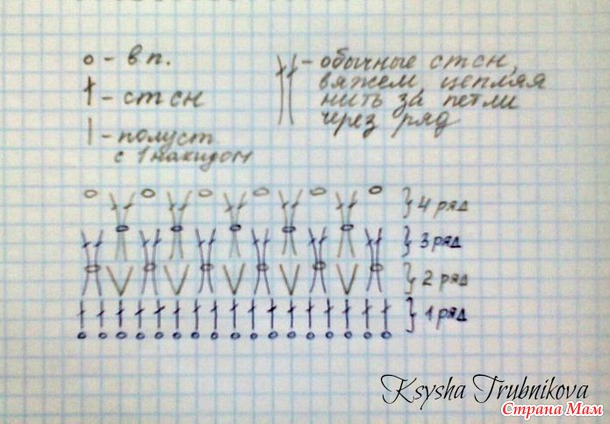 о - в п.
† - ст сн
| - полуст
с 1 накидом
- обычные ст сн,
вяжем, цепляя
нить за петли
через ряд
} 4 ряд
} 3 ряд
} 2 ряд
} 1 ряд
Ksysha Trubnikova
Страна Мам